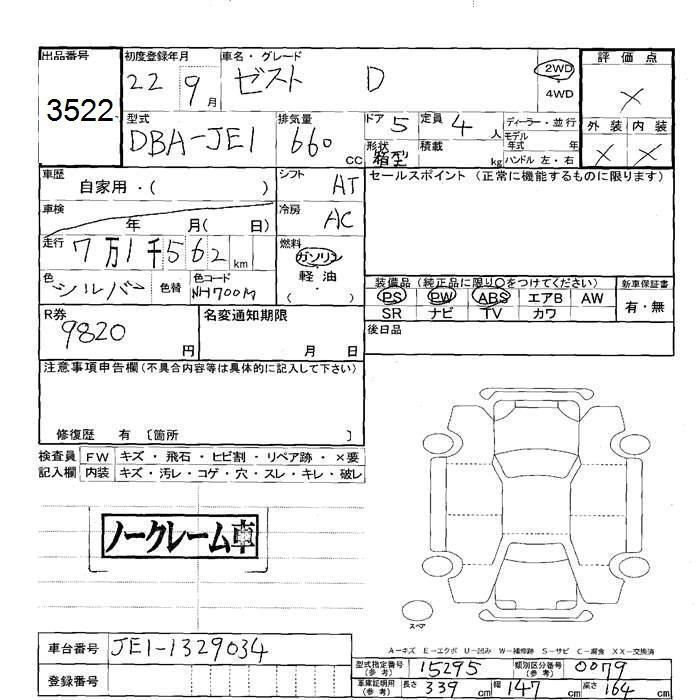 出品番号
3522
初度登録年月
22 9月
車名・グレード
ゼスト D
2WD
4WD
評価点
×
外装 内装
× ×
型式
DBA-JE1
排気量
660 cc
ドア 5
定員 4 人
形状 箱型
積載 kg
ディーラー・並行
モデル
年式 年
ハンドル 左・右
車歴
自家用・( )
シフト AT
セールスポイント (正常に機能するものに限ります)
車検
年 月( 日)
冷房 AC
走行
7万1千562 km
燃料
ガソリン
軽油
( ・ )
色
シルバー
色替
色コード
NH700M
装備品 (純正品に限り○をつけてください)
PS PW ABS エアB AW
SR ナビ TV カワ
新車保証書
有・無
R券
9820 円
名変通知期限
月 日
後日品
注意事項申告欄(不具合内容等は具体的に記入して下さい)
修復歴 有 〔箇所 〕
検査員 FW キズ・飛石・ヒビ割・リペア跡・×要
記入欄 内装 キズ・汚レ・コゲ・穴・スレ・キレ・破レ
ノークレーム車
スペア
A-キズ E-エクボ U-凹み W-補修跡 S-サビ C-腐食 XX-交換済
車台番号 JE1-1329034
登録番号
型式指定番号
(参考)
15295
類別区分番号
(参考)
0079
車庫証明用
(参考)
長さ 339 cm 幅 147 cm 高さ 164 cm